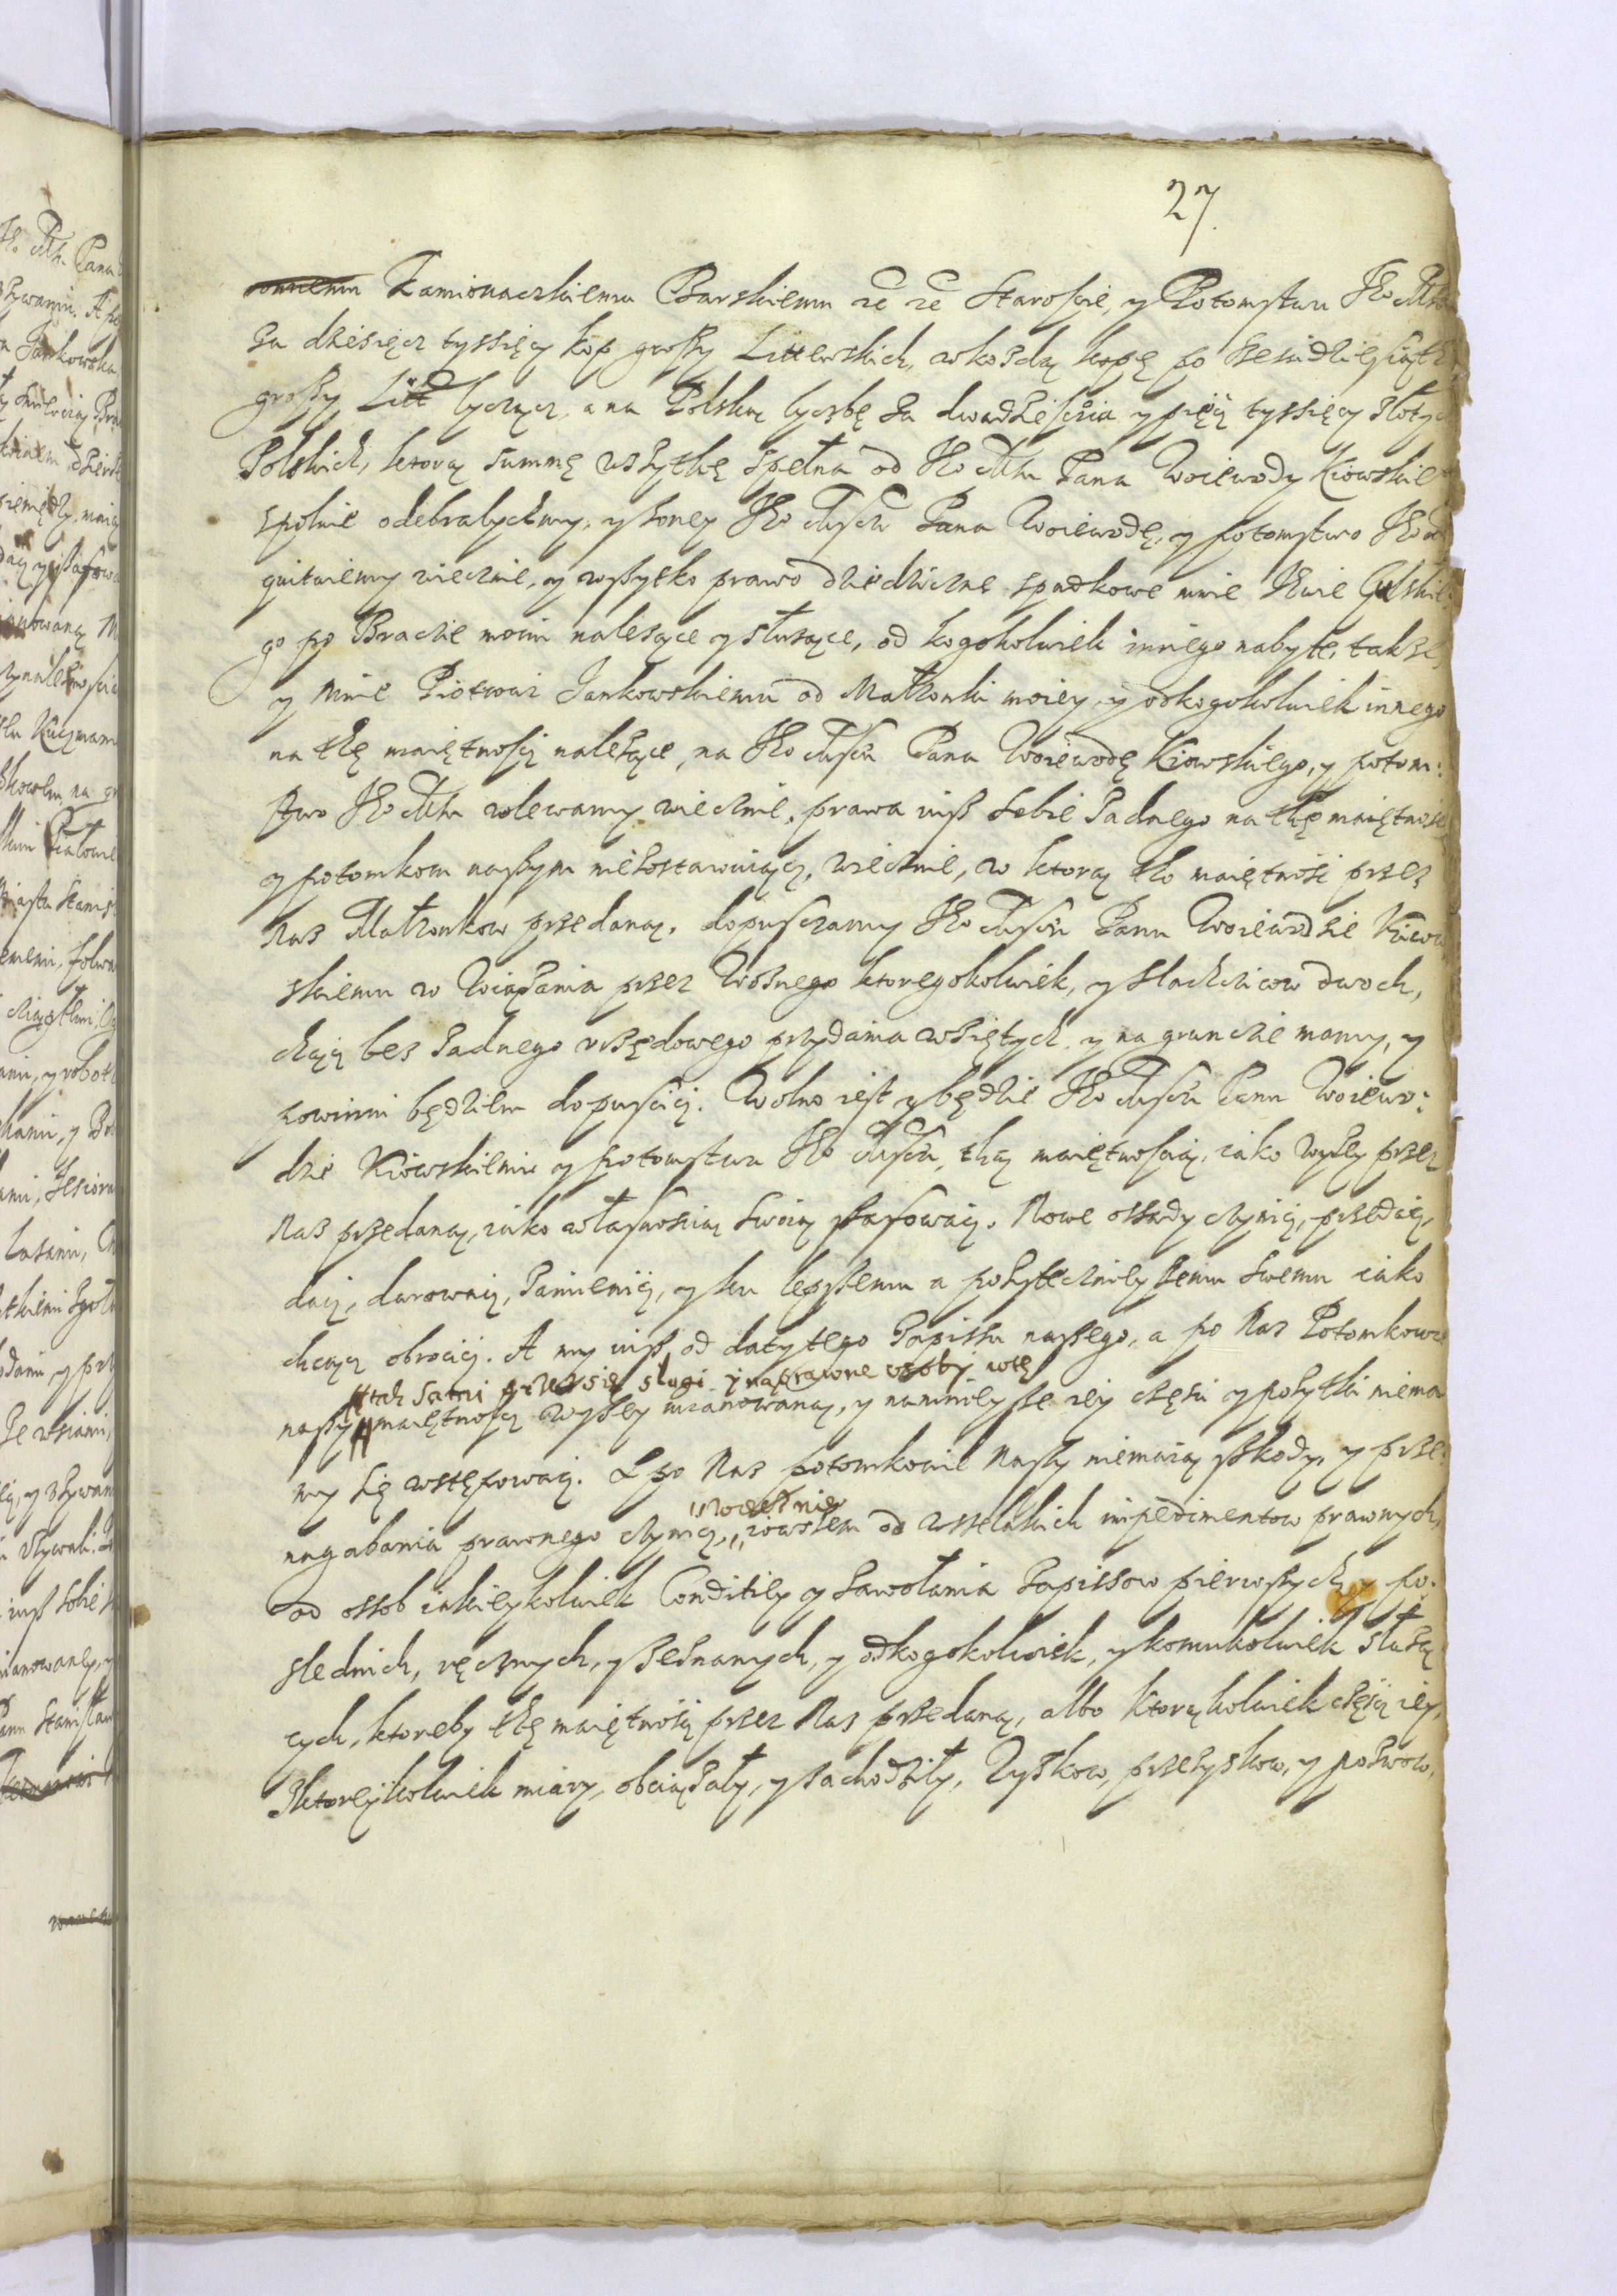 27
Kamionaczkiemu Barskiemu etc etc Staroscie, y Potomstwu Jho Mści
za dziesięcz tyssięcy kop groszy Littewskich, w kozdą kopę po szescidziesiąth
groszy Litt lyczącz, a na Polską lyczbę za dwadziescia y pięcz tyssięcy złotych
Polskich, ktorą summę wszytkę spełna od Jho Mści Pana Woiewody Kiowskie
spolnie odebralychmy, y z oney Jho Mści Pana Woiewodę, y potomstwo Jho
quituiemy wiecznie, y wszytko prawo dziedziczne spadkowe mnie
go po Bracie moim należące y służące, od kogokolwiek innego nabyte, także
y mnie Piotrowi Jankowskiemu od Małżonki moiey, y odkogokolwiek innego
na thę maiętnoscz należące, na Jho Mści Pana Woiewodę Kiowskiego, y potom:
stwo Jho Mści wlewamy wiecznie, prawa iusz sobie zadnego na thę maiętnosc
y potomkom naszym niezostawuiącz, wiecznie, w ktorą tho maiętnosc przez
Nas Małżonkow przedaną, dopusczamy Jho Mści Panu Woiewodzie Kiow
skiemu w Wiązania przez Woznego ktoregokolwiek, y slachcicow dwoch,
chocia bez zadnego vrzędowego przydania wziętych y na gruncie mamy, y
powinni będziem dopuscicz. Wolno iest y będzie Jho Mści Panu Woiewo:
dzie Kiowskiemu y potomstwu Jho Mści, thą maiętnoscią, iako wyszey przez
Nas przedaną, iako własnoscią swoią szafowacz. Nowe ossady czynicz, przedacz,
dacz, darowacz, zamienicz, y ku lepszemu a pożytecznieyszemu swemu iako
chcącz obrocicz. A my iusz od daty tego zapissu naszego, a po Nas Potomkowie
tak sami przez się slugi y naprawne osoby w tę
naszy maiętnoscz wyszey mianowaną, y namnieysze iey częsci y pożytki niema
my się wstępowacz. A po Nas potomkowie Naszy niemaią szkody, y prze:
wiecznie
nagabania prawnego czynicz, owszem od wszelakich impedimentow prawnych,
od ossob iakieykolwiek Conditiey y zawołania zapissow pierwszych y po:
slednich, ręcznych, y zeznanych, y odkogokolwiek, y komukolwiek służą
cych, ktoreby thę maiętnoscz przez Nas przedaną, albo ktorąkolwiek częscz iey,
zktoreykolwiek miary, obciążały, y zachodziły, Zyskow, przezyskow, y pozwow,